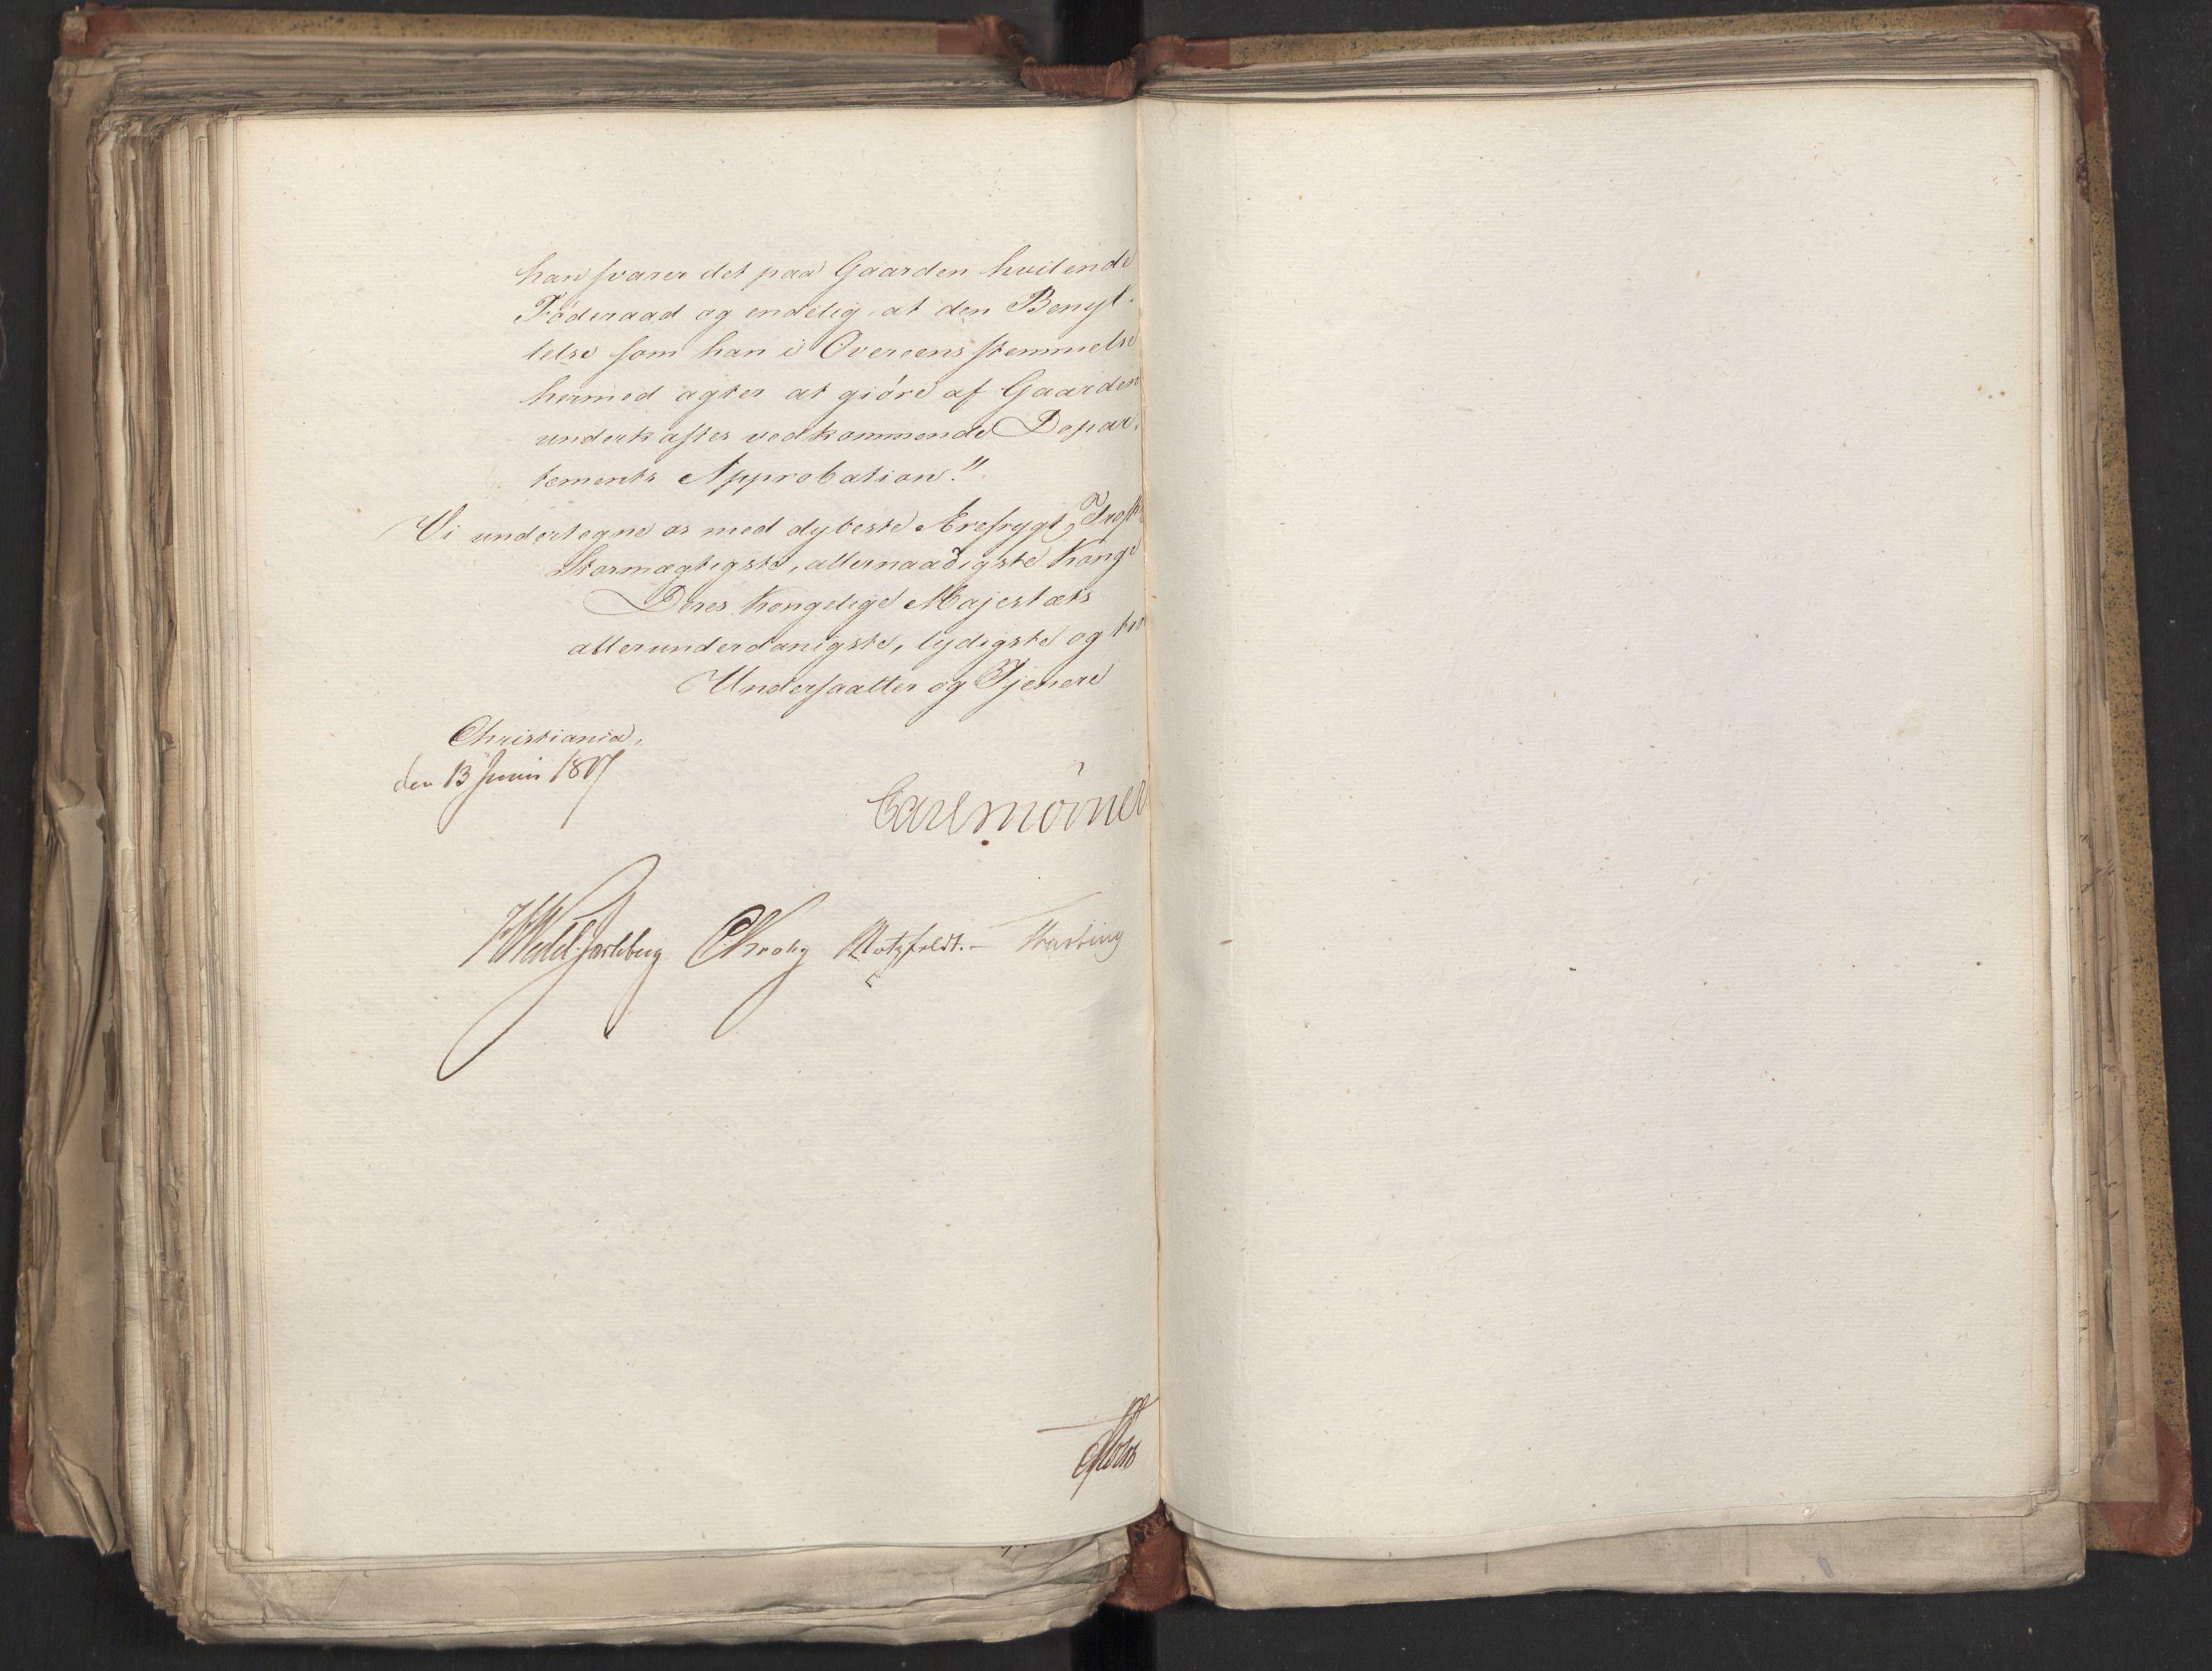 han svarer det paa Gaarden hvilende
Föderaad og endelig at den Benyt-
telse som han i Overeensstemmelse
hermed agter at giöre af Gaarden
underkastes vedkommende Depar-
tements Approbation."
Vi undertegne os med dybeste Ærefrygt,
Stormægtigste, allernaadigste Konge
Deres Kongelige Majestæts
allerunderdanigste, lydigste og
Undersaatter og Tjenere
Christiania,
den 13 Junii 1817
Carl Mörner
HWedel Jarlsberg CKrohg Motzfeldt. Hasting